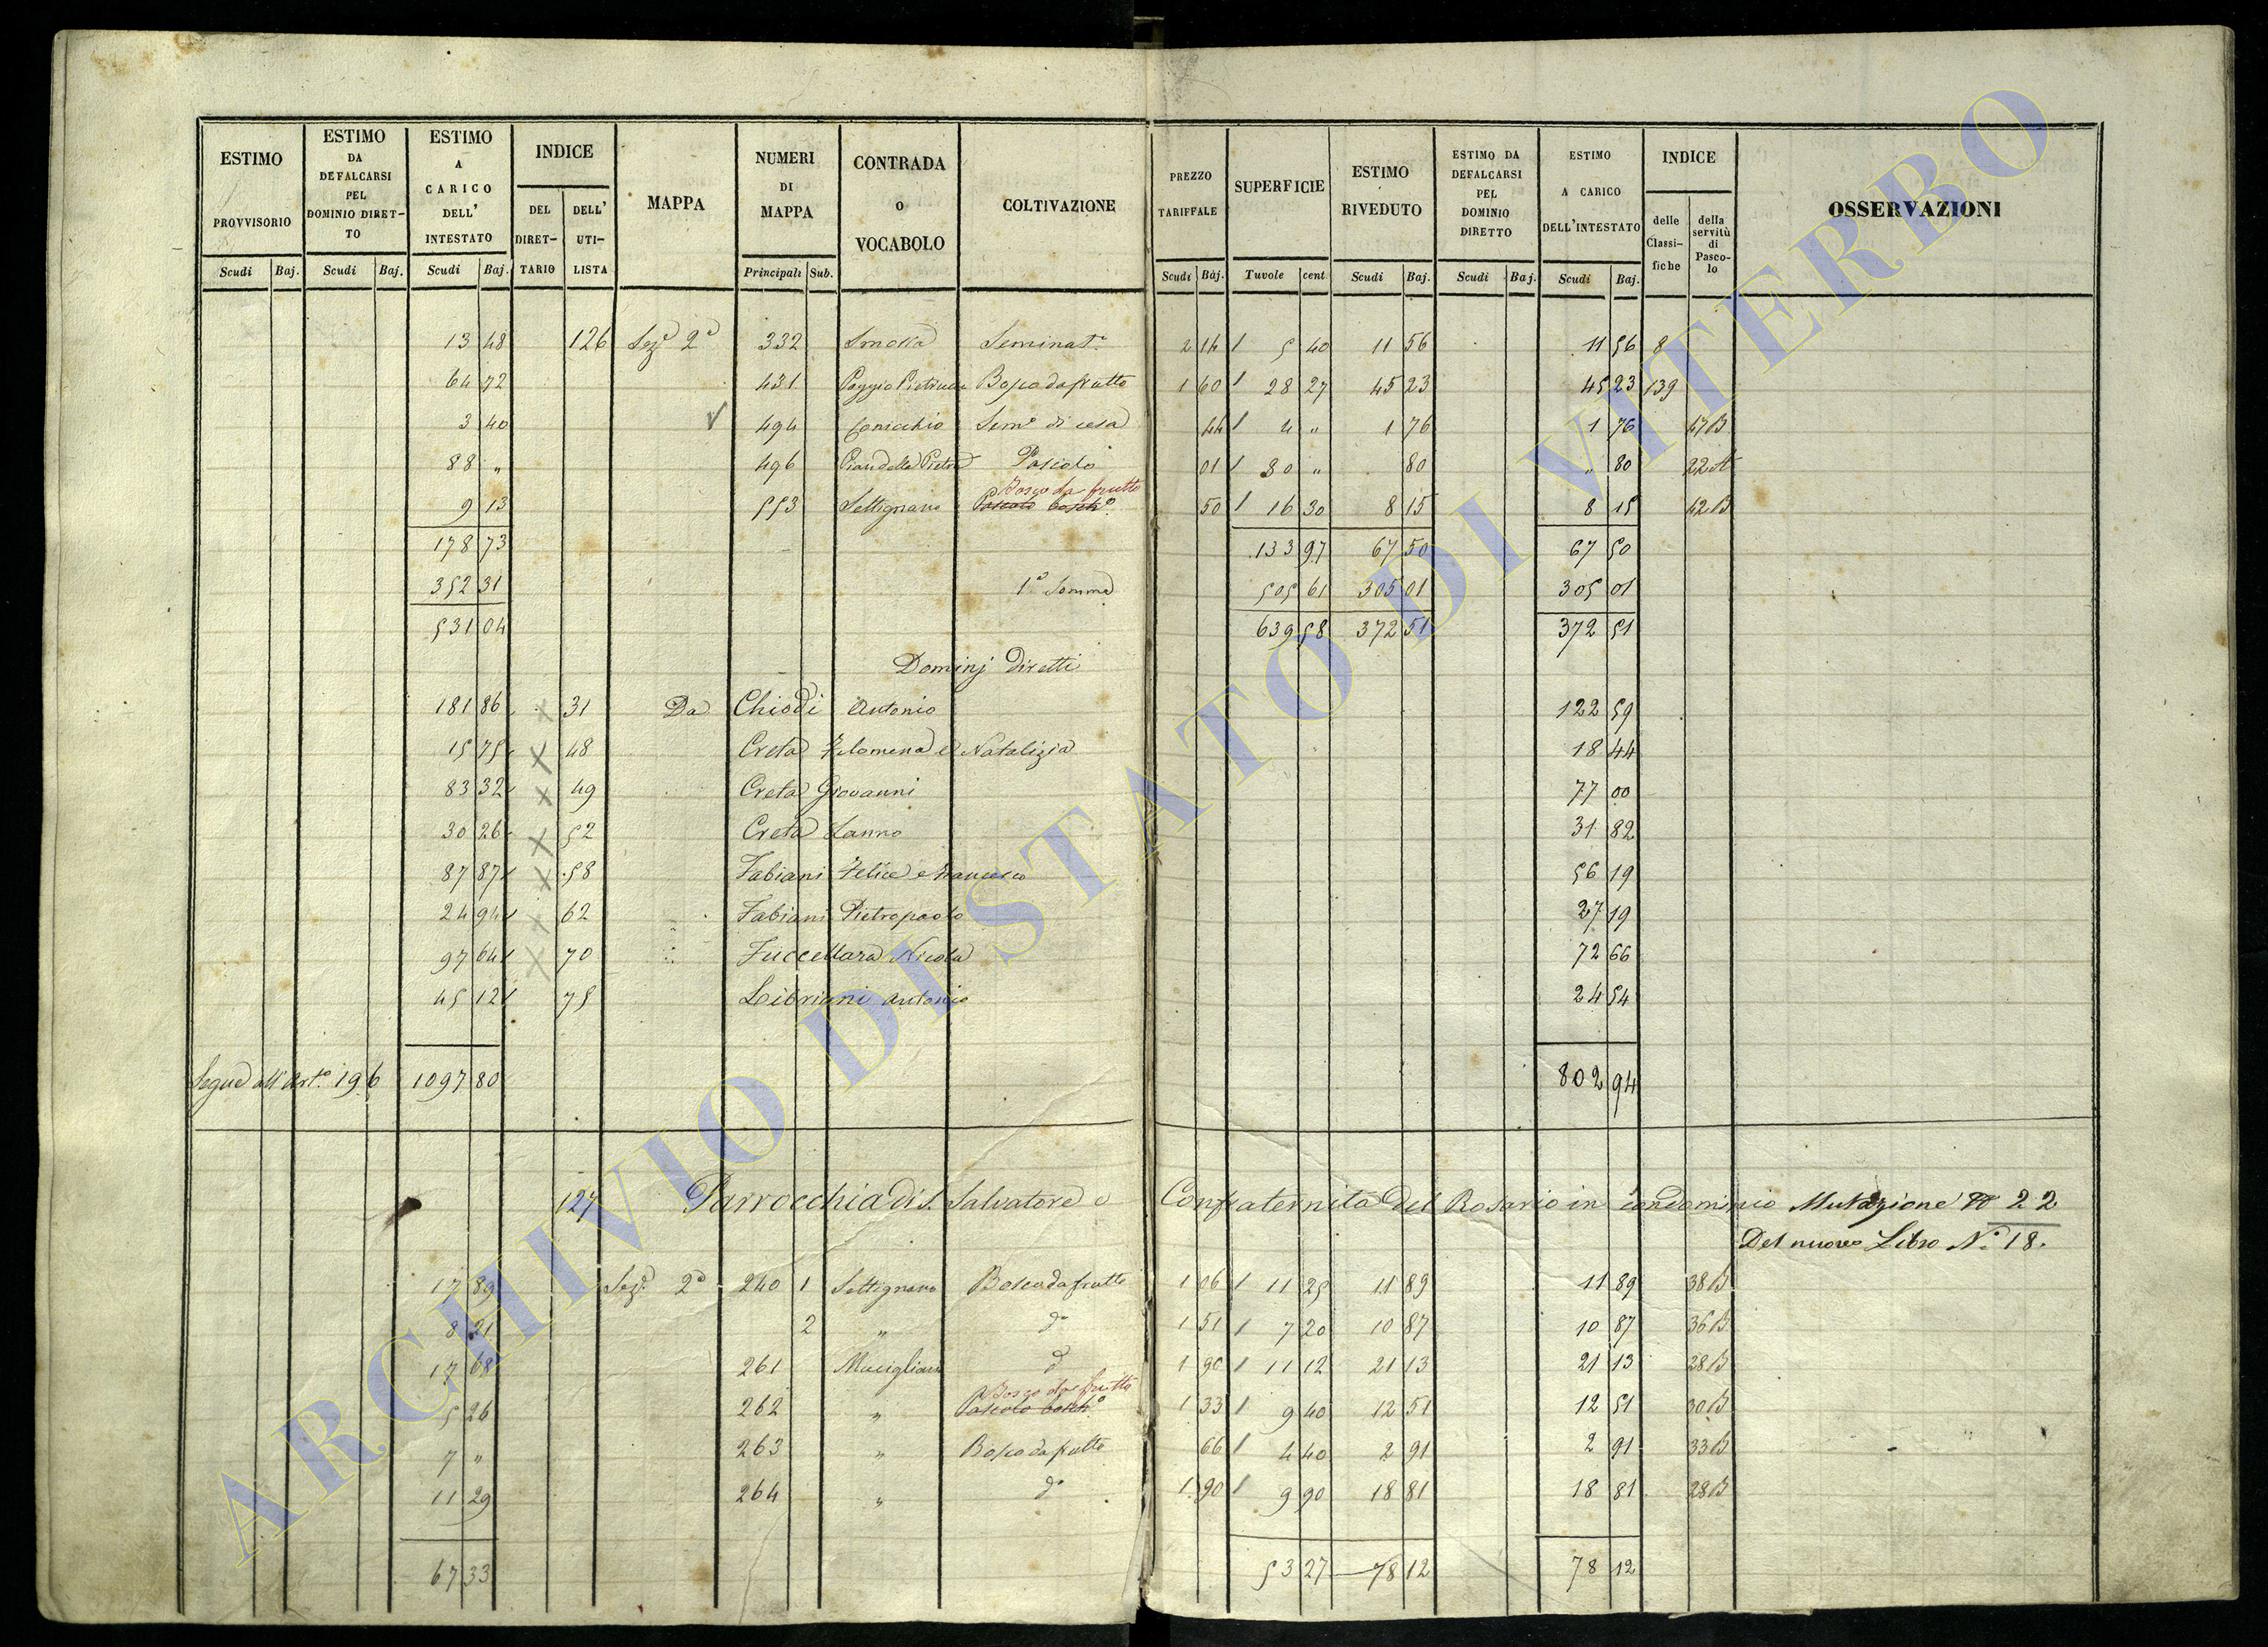 ESTIMO PROVVISORIO Scudi Baj.
ESTIMO DA DEFALCARSI PEL DOMINIO DIRET-TO Scudi Baj.
ESTIMO A CARICO DELL' INTESTATO Scudi Baj.
INDICE DEL DIRET-TARIO DELL' UTI-LISTA
MAPPA
NUMERI DI MAPPA Principali Sub.
CONTRADA O VOCABOLO
COLTIVAZIONE
PREZZO TARIFFALE Scudi Baj.
SUPERFICIE Tavole cent
ESTIMO RIVEDUTO Scudi Baj.
ESTIMO DA DEFALCARSI PEL DOMINIO DIRETTO Scudi Baj.
ESTIMO A CARICO DELL'INTESTATO Scudi Baj.
INDICE delle Classi-fiche della servitù di Pasco-lo
OSSERVAZIONI
13 48 126 Sez.e 2a 332 Seminat.o 2 14 5 40 11 56 11 56 8
64 72 431 Bosco da frutto 1 60 28 27 45 23 45 23 139
3 40 494 Conicchio Sem.o di cesa 44 4 „ 1 76 1 76 47B
88 „ 496 Pian della Pietra Pascolo 01 80 „ 80 „ 80 22A
9 13 553 Settignano Bosco da frutto Pascolo bosch.o 50 16 30 8 15 8 15 42B
178 73 133 97 67 50 67 50
352 31 1a Somma 505 61 305 01 305 01
531 04 639 58 372 51 372 51
Dominj diretti
181 86 31 Da Chiodi Antonio 122 59
15 75 48 Creta Filomena e Natalizia 18 44
83 32 49 Creta Giovanni 77 00
30 26 52 Creta Sanno 31 82
87 87 58 Fabiani Felice e Francesco 56 19
24 94 62 Fabiani Pietropaolo 27 19
97 64 70 Fuccellara Nicola 72 66
45 12 75 Libriani Antonio 24 54
Segue all'Art.o 196 1097 80 802 94
127 Parrocchia di S. Salvatore e Confraternita del Rosario in condominio Mutazione N 22
Del nuovo Libro N.o 18.
17 89 Sez.e 2a 240 1 Settignano Bosco da frutto 1 06 11 25 11 89 11 89 38B
8 21 2 „ d.o 1 51 7 20 10 87 10 87 36B
17 68 261 Mucigliano d.o 1 90 11 12 21 13 21 13 28B
5 26 262 „ Bosco da frutto Pascolo bosch.o 1 33 9 40 12 51 12 51 30B
7 „ 263 „ Bosco da frutto 66 4 40 2 91 2 91 33B
11 29 264 „ d.o 1 90 9 90 18 81 18 81 28B
67 33 53 27 78 12 78 12
ARCHIVIO DI STATO DI VITERBO